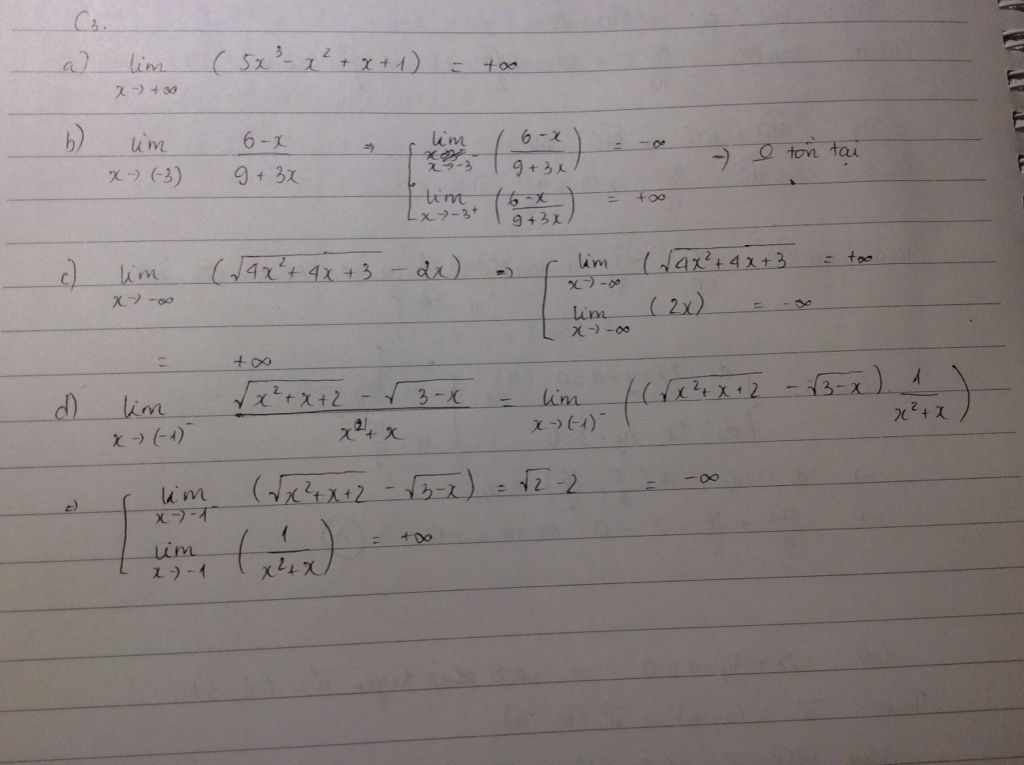 C3.
a) lim x→+∞ (5x³ - x² + x + 1) = +∞
b) lim x→(-3) (6-x)/(9+3x) ⇒ { lim x→-3⁻ ((6-x)/(9+3x)) = -∞ → O tồn tại
lim x→-3⁺ ((6-x)/(9+3x)) = +∞
c) lim x→-∞ (√(4x²+4x+3) - 2x) ⇒ { lim x→-∞ (√(4x²+4x+3) = +∞
lim x→-∞ (2x) = -∞
= +∞
d) lim x→(-1)⁻ (√(x²+x+2) - √(3-x))/(x²+x) = lim x→(-1)⁻ ((√(x²+x+2) - √(3-x)) · 1/(x²+x))
⇒ { lim x→-1⁻ (√(x²+x+2) - √(3-x)) = √2 - 2 = -∞
lim x→-1 (1/(x²+x)) = +∞